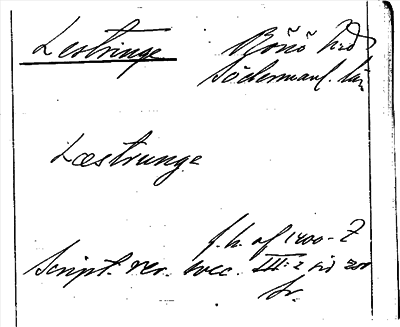 Lestringe Rönö hd
Södermanl. län
Læstrunge
f. h. af 1400-t
Script. rer. svec. III: 2 sid 200
Sv.